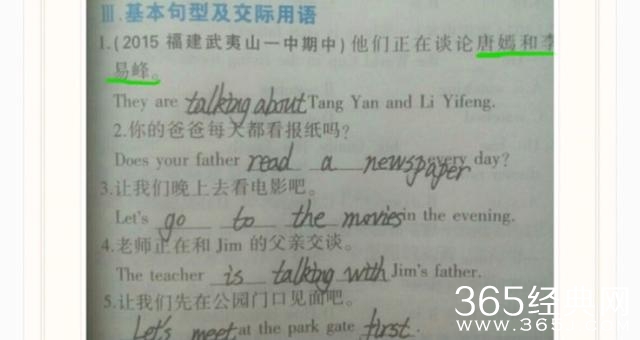 Ⅲ.基本句型及交际用语
1.(2015 福建武夷山一中期中)他们正在谈论唐嫣和李
易峰。
They are talking about Tang Yan and Li Yifeng.
2.你的爸爸每天都看报纸吗?
Does your father read a newspaper every day?
3.让我们晚上去看电影吧。
Let's go to the movies in the evening.
4.老师正在和 Jim 的父亲交谈。
The teacher is talking with Jim's father.
5.让我们先在公园门口见面吧。
Let's meet at the park gate first.
365经典网
www.365